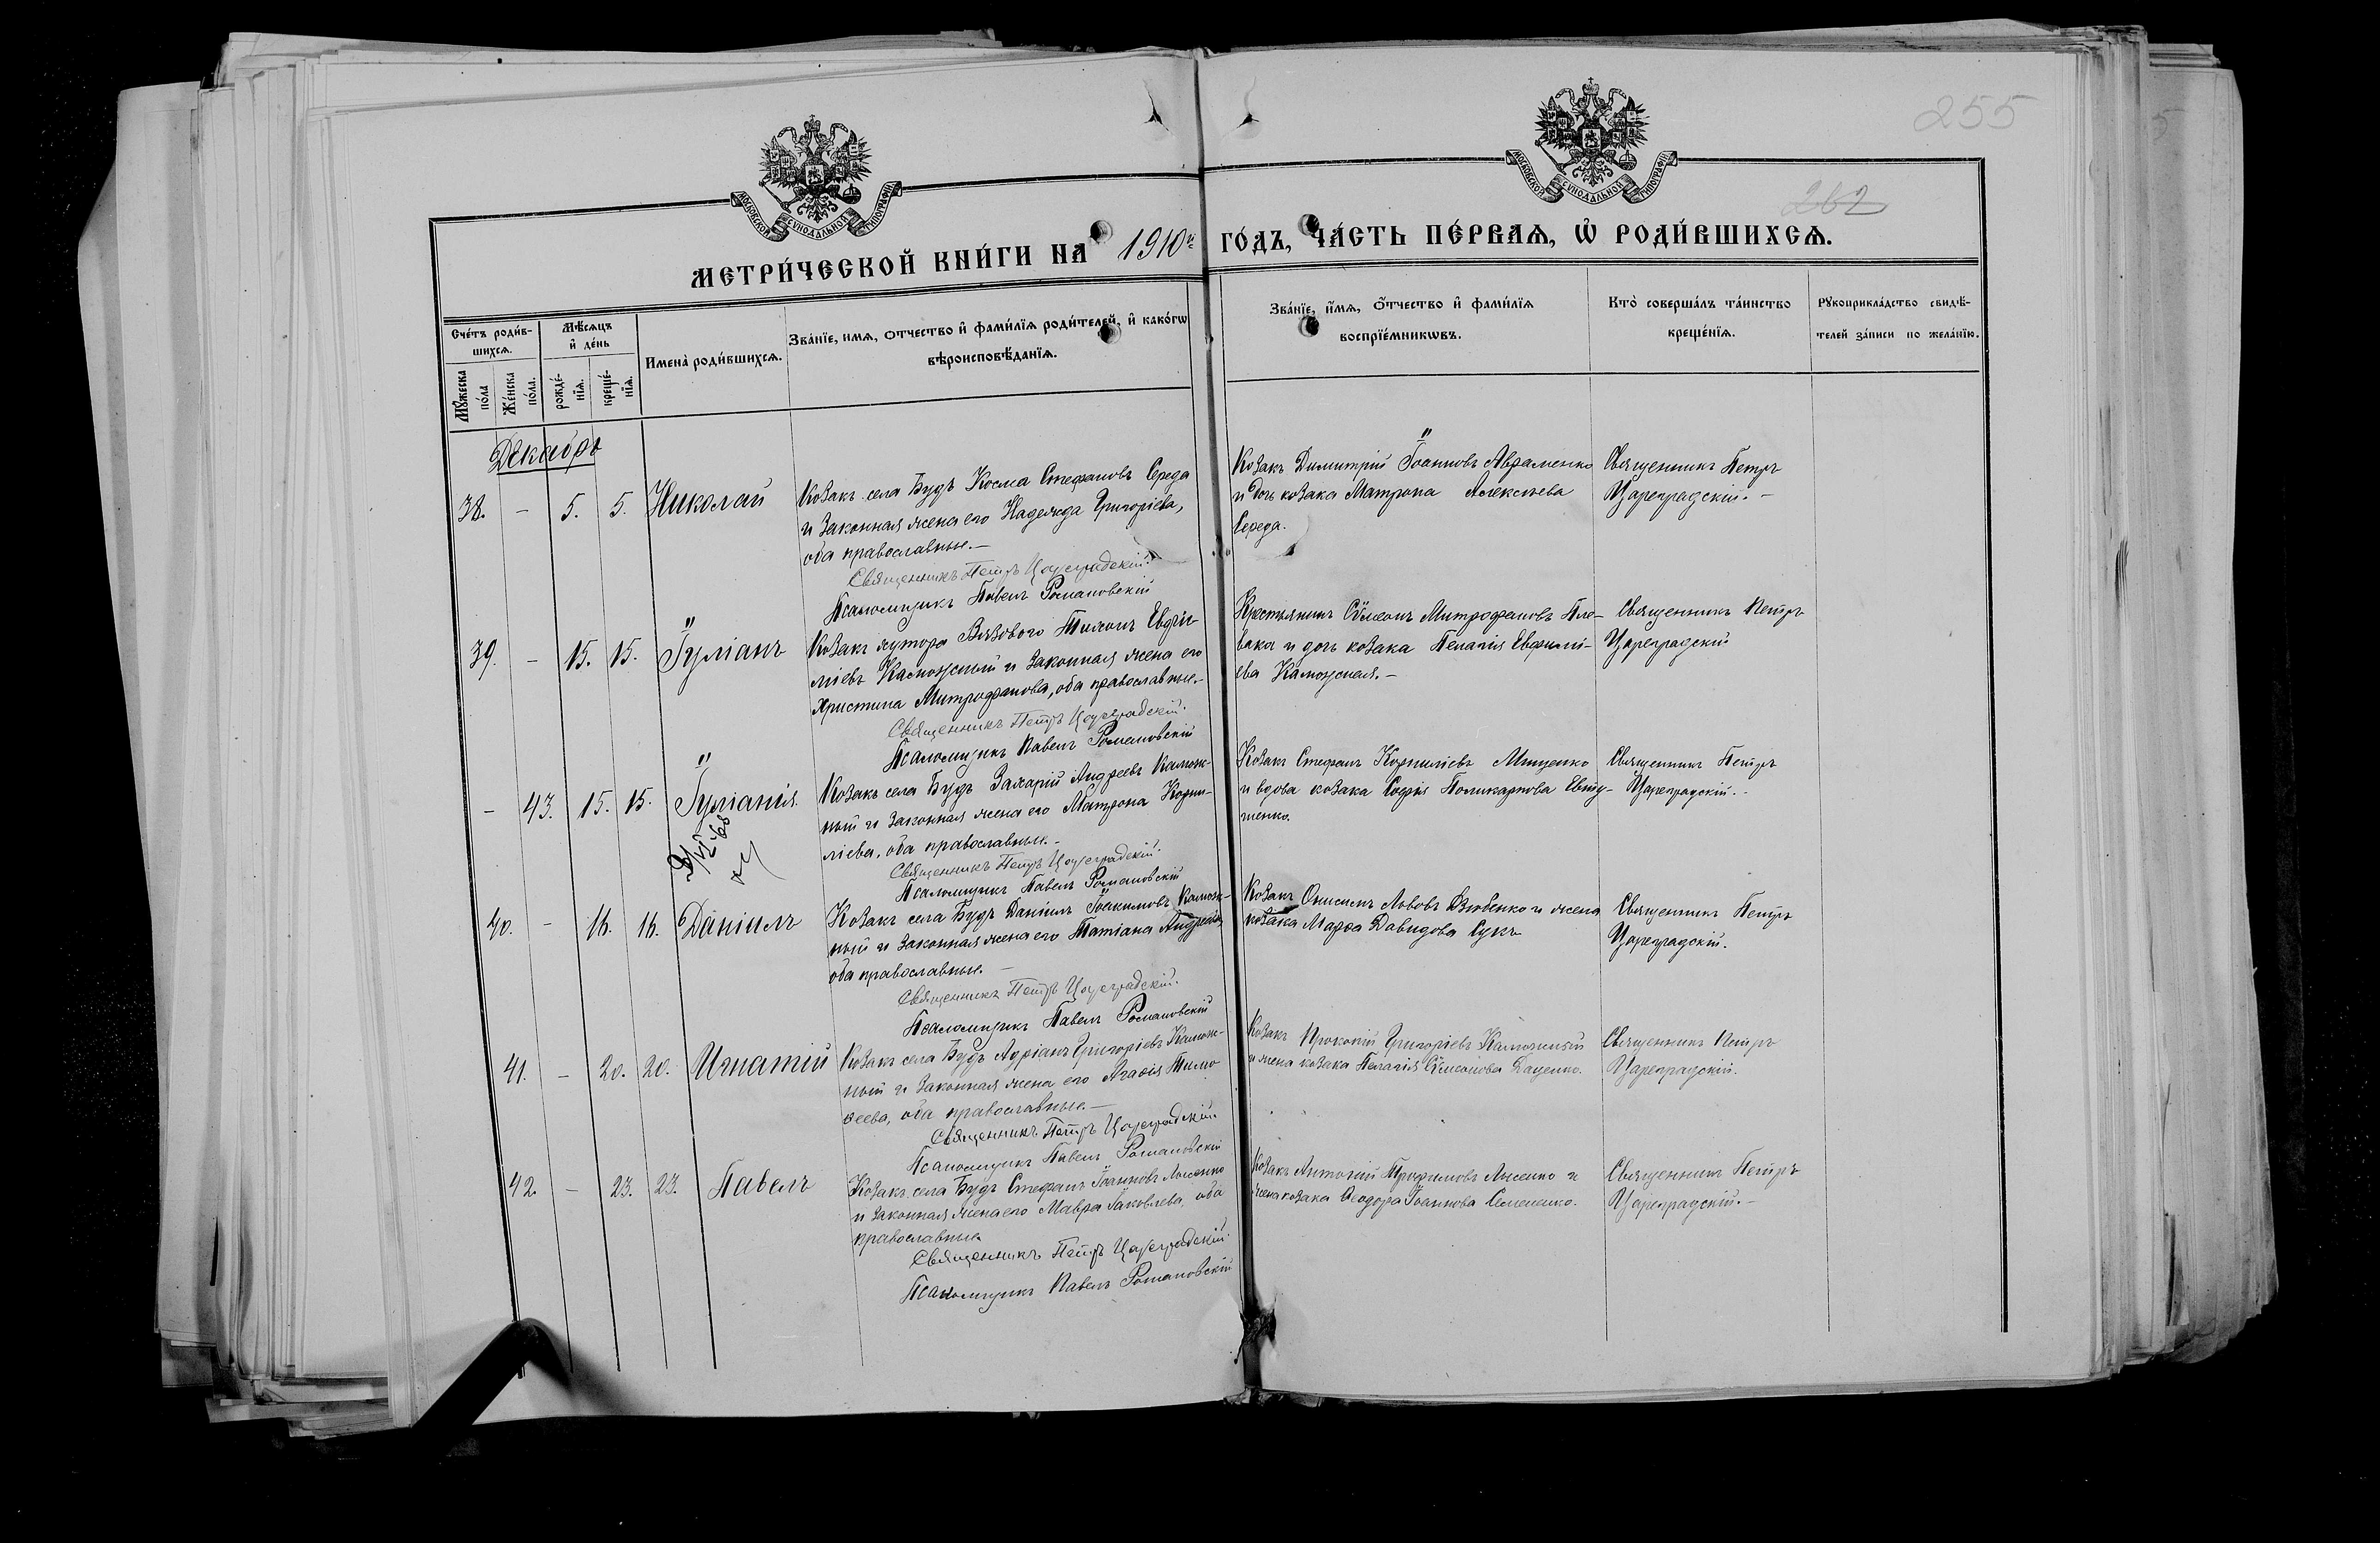 255
262
МОСКОВСКОЙ СУНОДАЛЬНОЙ ТИПОГРАФІИ
МОСКОВСКОЙ СУНОДАЛЬНОЙ ТИПОГРАФІИ
МЕТРИ́ЧЕСКОЙ КНИ́ГИ НА 1910й ГО́ДЪ, ЧА́СТЬ ПЕ́РВАѦ, Ѡ РОДИ́ВШИХСѦ.
Сче́тъ роди́в-
шихсѧ.
Мꙋ́жеска по́ла
Же́нска по́ла.
Мѣ́сѧцъ
и҆ де́нь
рожде́-
нїѧ.
креще́-
нїѧ.
Имена̀ роди́вшихсѧ.
Зва́нїе, имѧ, ѻтчество и҆ фами́лїѧ роди́телей, и҆ како́гѡ
вѣроисповѣ́данїѧ.
Зва́нїе, и҆́мѧ, ѻ҆́тчество и҆ фами́лїѧ
воспрїе́мникѡвъ.
Кто̀ соверша́лъ та́инство
креще́нїѧ.
Рꙋкоприкла́дство свидѣ́-
телей за́писи по жела́нїю.
Декабрь
38. - 5. 5. Николай
Козакъ села Будъ Косма Стефановъ Середа
и законная жена его Надежда Григоріева,
оба православные.-
Священникъ Петръ Цареградскій.
Псаломщикъ Павелъ Романовскій
Козакъ Димитрій Іоанновъ Авраменко
и дочь козака Матрона Алексѣева
Середа.
Священникъ Петръ
Цареградскій.-
39. - 15. 15. Іуліанъ
Козакъ хутора Вязового Тихонъ Евфи-
міевъ Каможный и законная жена его
Христина Митрофанова, оба православные.-
Священникъ Петръ Цареградскій.
Псаломщикъ Павелъ Романовскій
Крестьянинъ Сѵмеонъ Митрофановъ Пле-
вака и дочь козака Пелагія Евфимі-
ева Каможная.-
Священникъ Петръ
Цареградскій
- 43. 15. 15. Іуліанія.
Козакъ села Будъ Захарій Андреевъ Камож-
ный и законная жена его Матрона Корни-
ліева, оба православные.-
Священникъ Петръ Цареградскій.
Псаломщикъ Павелъ Романовскій
Козакъ Стефанъ Корниліевъ Мищенко
и вдова козака Софія Поликарпова Евту-
шенко.
Священникъ Петръ
Цареградскій.-
40. - 16. 16. Даніилъ
Козакъ села Будъ Даніилъ Іоакимовъ Камож-
ный и законная жена его Татіана Андреева,
оба православные.-
Священникъ Петръ Цареградскій.
Псаломщикъ Павелъ Романовскій
Козакъ Онисимъ Львовъ Дзюбенко и жена
козака Марѳа Давидова Сукъ
Священникъ Петръ
Цареградскій.
41. - 20. 20. Игнатій
Козакъ села Будъ Адріанъ Григоріевъ Камож-
ный и законная жена его Агаѳія Тимо
ѳеева, оба православные.-
Священникъ Петръ Цареградскій.
Псаломщикъ Павелъ Романовскій
Козакъ Прокопій Григоріевъ Каможный
и жена козака Пелагія Сѵмеонова Даценко.
Священникъ Петръ
Цареградскій.
42. - 23. 23. Павелъ
Козакъ села Будъ Стефанъ Іоанновъ
и законная жена его Мавра Іаковлева, оба
православные
Священникъ Петръ Цареградскій.
Псаломщикъ Павелъ Романовскій
Козакъ Антоній Трофимовъ Лысенко и
жена козака Ѳеодора Іоаннова Семененко.
Священникъ Петръ
Цареградскій.-